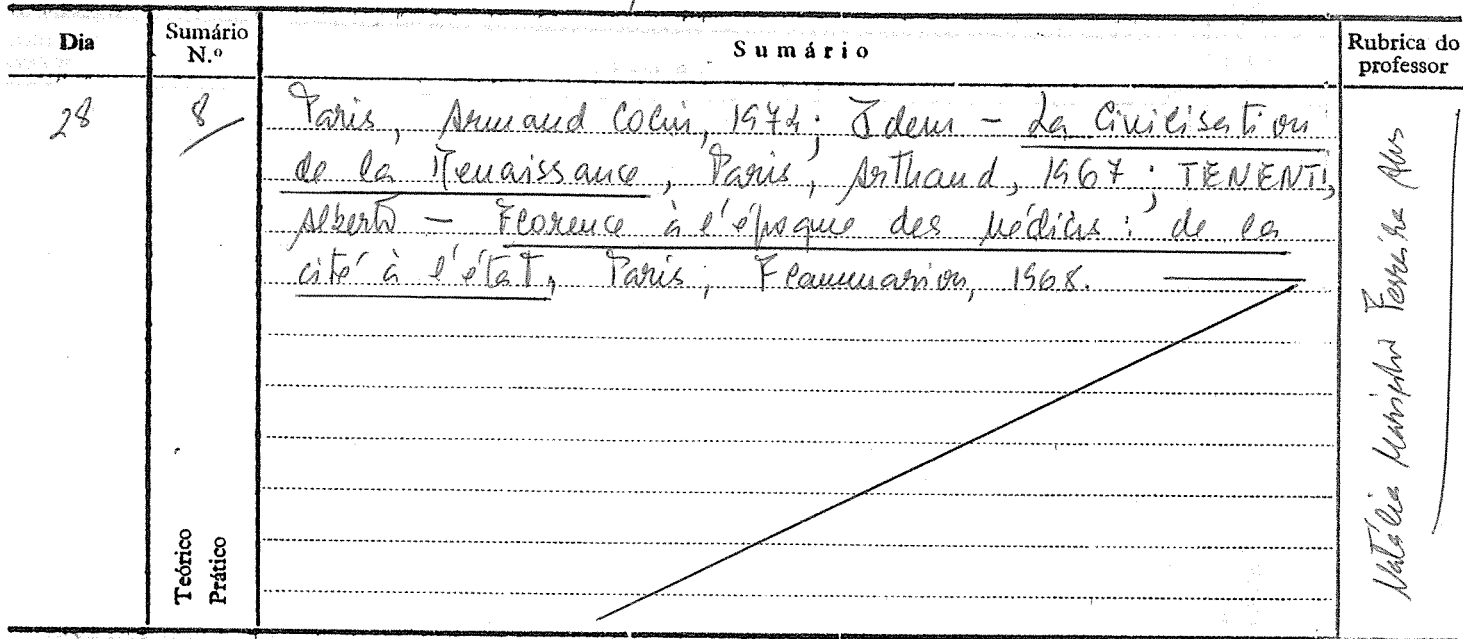 Dia
Sumário N.º
Sumário
Rubrica do professor
28
8
Paris, Armand Colin, 1974; Idem – La Civilisation
de la Renaissance, Paris, Arthaud, 1967; TENENTI,
Alberto – Florence à l'époque des Médicis: de la
cité à l'état, Paris, Flammarion, 1968.
Teórico
Prático
Natália Marinho Ferreira Alves